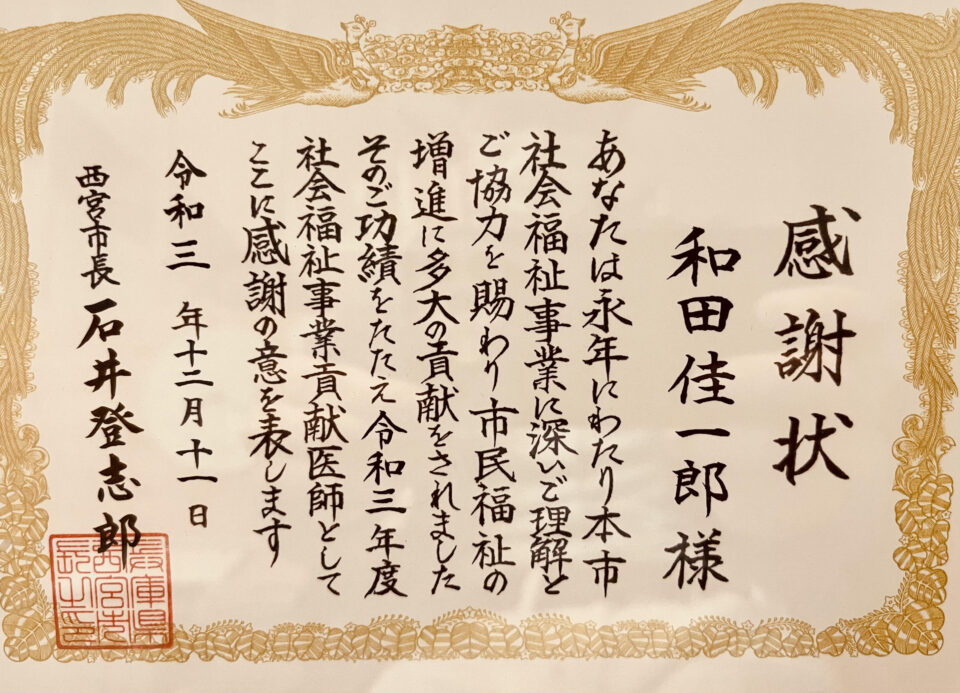 感謝状
和田佳一郎様
あなたは永年にわたり本市
社会福祉事業に深いご理解と
ご協力を賜わり市民福祉の
増進に多大の貢献をされました
そのご功績をたたえ令和三年度
社会福祉事業貢献医師として
ここに感謝の意を表します
令和三年十二月十一日
西宮市長 石井登志郎
兵庫県西宮市長之印